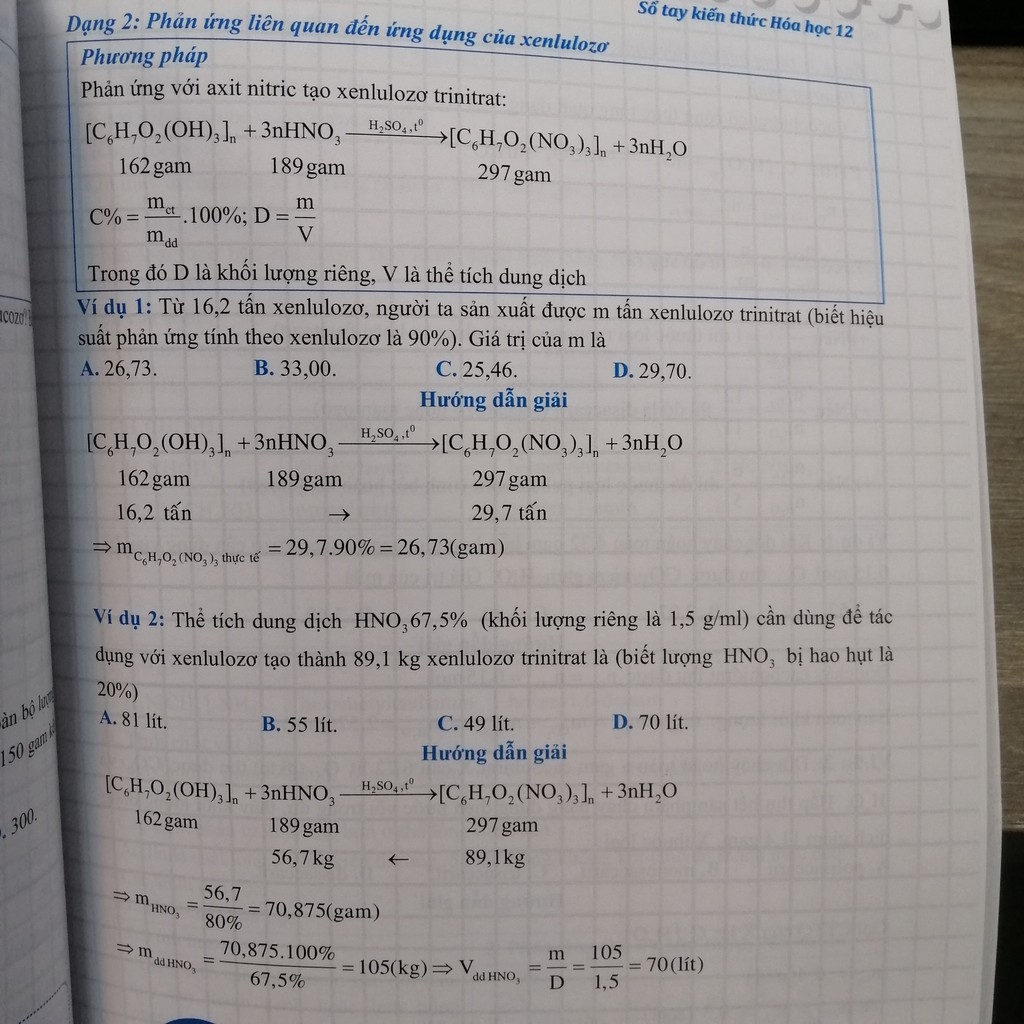 Sổ tay kiến thức Hóa học 12
Dạng 2: Phản ứng liên quan đến ứng dụng của xenlulozơ
Phương pháp
Phản ứng với axit nitric tạo xenlulozơ trinitrat:
[C₆H₇O₂(OH)₃]ₙ + 3nHNO₃ —H₂SO₄,t⁰→ [C₆H₇O₂(NO₃)₃]ₙ + 3nH₂O
162 gam 189 gam 297 gam
C% = m_ct/m_dd .100%; D = m/V
Trong đó D là khối lượng riêng, V là thể tích dung dịch
Ví dụ 1: Từ 16,2 tấn xenlulozơ, người ta sản xuất được m tấn xenlulozơ trinitrat (biết hiệu
suất phản ứng tính theo xenlulozơ là 90%). Giá trị của m là
A. 26,73. B. 33,00. C. 25,46. D. 29,70.
Hướng dẫn giải
[C₆H₇O₂(OH)₃]ₙ + 3nHNO₃ —H₂SO₄,t⁰→ [C₆H₇O₂(NO₃)₃]ₙ + 3nH₂O
162 gam 189 gam 297 gam
16,2 tấn → 29,7 tấn
⇒ m_C₆H₇O₂(NO₃)₃ thực tế = 29,7.90% = 26,73(gam)
Ví dụ 2: Thể tích dung dịch HNO₃ 67,5% (khối lượng riêng là 1,5 g/ml) cần dùng để tác
dụng với xenlulozơ tạo thành 89,1 kg xenlulozơ trinitrat là (biết lượng HNO₃ bị hao hụt là
20%)
A. 81 lít. B. 55 lít. C. 49 lít. D. 70 lít.
Hướng dẫn giải
[C₆H₇O₂(OH)₃]ₙ + 3nHNO₃ —H₂SO₄,t⁰→ [C₆H₇O₂(NO₃)₃]ₙ + 3nH₂O
162 gam 189 gam 297 gam
56,7 kg ← 89,1kg
⇒ m_HNO₃ = 56,7/80% = 70,875(gam)
⇒ m_dd HNO₃ = 70,875.100%/67,5% = 105(kg) ⇒ V_dd HNO₃ = m/D = 105/1,5 = 70(lít)
àn bộ
150 gam
. 300.